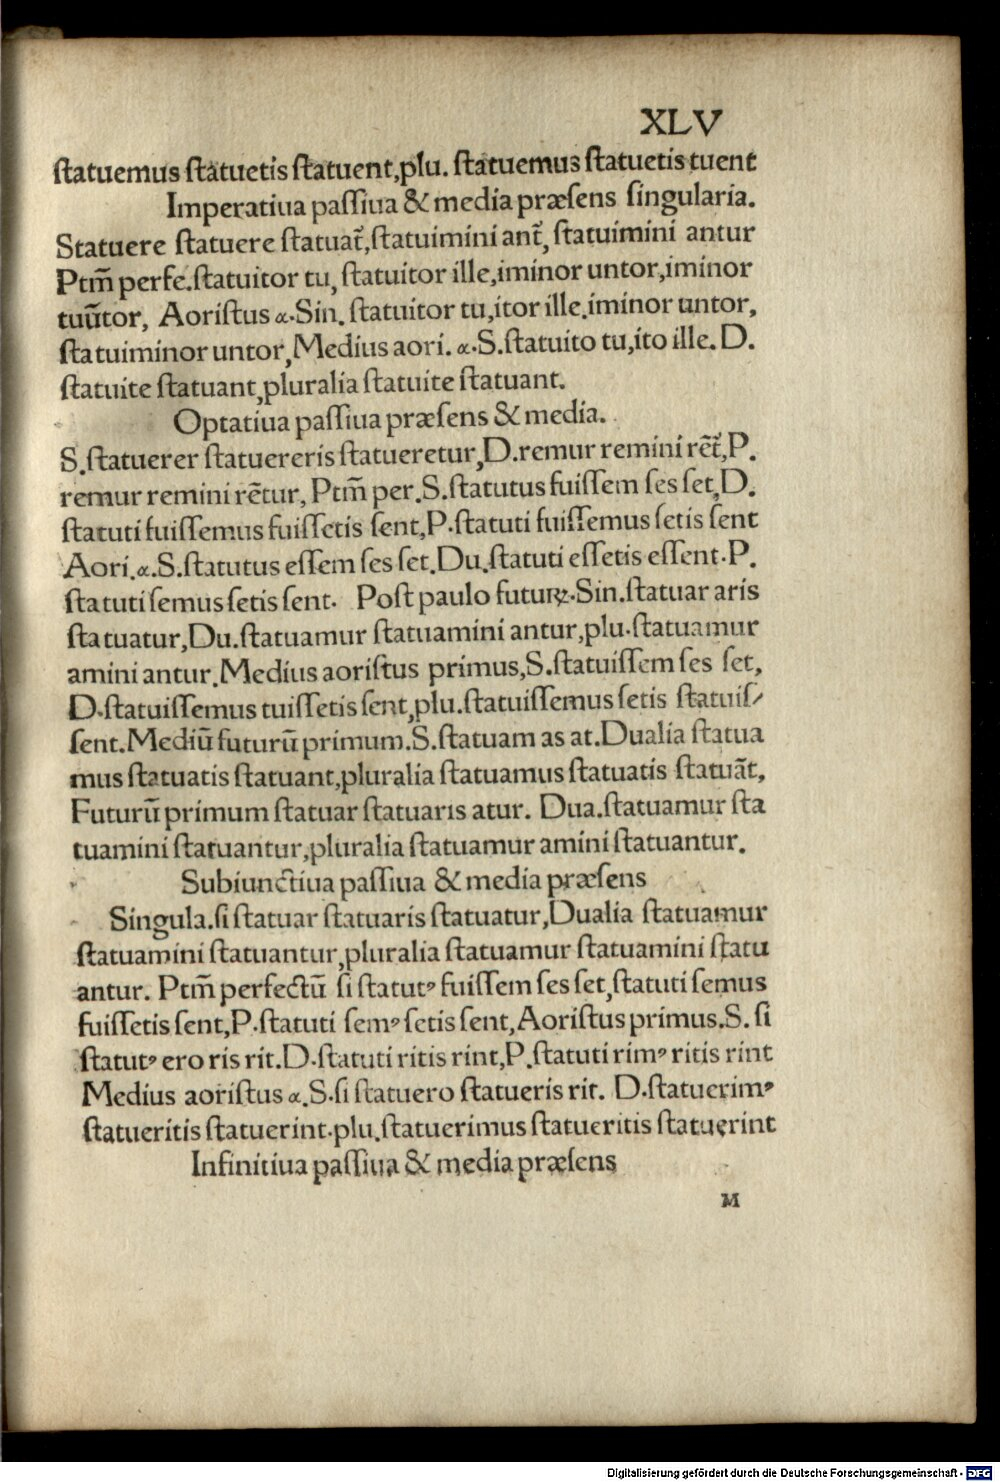 XLV
statuemus statuetis statuent,plu. statuemus statuetis tuent
Imperatiua passiua & media præsens singularia.
Statuere statuere statuat᷑,statuimini ant᷑, statuimini antur
Ptm̄ perfe.statuitor tu, statuitor ille,iminor untor,iminor
tuūtor, Aoristus α.Sin. statuitor tu,itor ille.iminor untor,
statuiminor untor,Medius aori. α.S.statuito tu,ito ille. D.
statuite statuant,pluralia statuite statuant.
Optatiua passiua præsens & media.
S.statuerer statuereris statueretur,D.remur remini rēt᷑,P.
remur remini rētur, Ptm̄ per.S.statutus fuissem ses set,D.
statuti fuissemus fuissetis sent,P.statuti fuissemus setis sent
Aori.α.S.statutus essem ses set.Du.statuti essetis essent.P.
statuti semus setis sent. Post paulo futuꝝ.Sin.statuar aris
statuatur,Du.statuamur statuamini antur,plu.statuamur
amini antur.Medius aoristus primus,S.statuissem ses set,
D.statuissemus tuissetis sent,plu.statuissemus setis statuis/
sent.Mediū futurū primum.S.statuam as at.Dualia statua
mus statuatis statuant,pluralia statuamus statuatis statuāt,
Futurū primum statuar statuaris atur. Dua.statuamur sta
tuamini statuantur,pluralia statuamur amini statuantur.
Subiunctiua passiua & media præsens
Singula.si statuar statuaris statuatur,Dualia statuamur
statuamini statuantur,pluralia statuamur statuamini statu
antur. Ptm̄ perfectū si statutꝰ fuissem ses set,statuti semus
fuissetis sent,P.statuti semꝰ setis sent,Aoristus primus.S. si
statutꝰ ero ris rit.D.statuti ritis rint,P.statuti rimꝰ ritis rint
Medius aoristus α.S.si statuero statueris rit. D.statuerimꝰ
statueritis statuerint.plu.statuerimus statueritis statuerint
Infinitiua passiua & media præsens
M
Digitalisierung gefördert durch die Deutsche Forschungsgemeinschaft - DFG